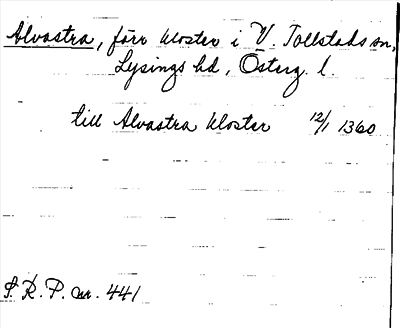 Alvastra, förr kloster i V. Tollstads sn,
Lysings hd, Österg. l.
till Alvastra kloster 12/1 1360
S. R. P. nr. 441